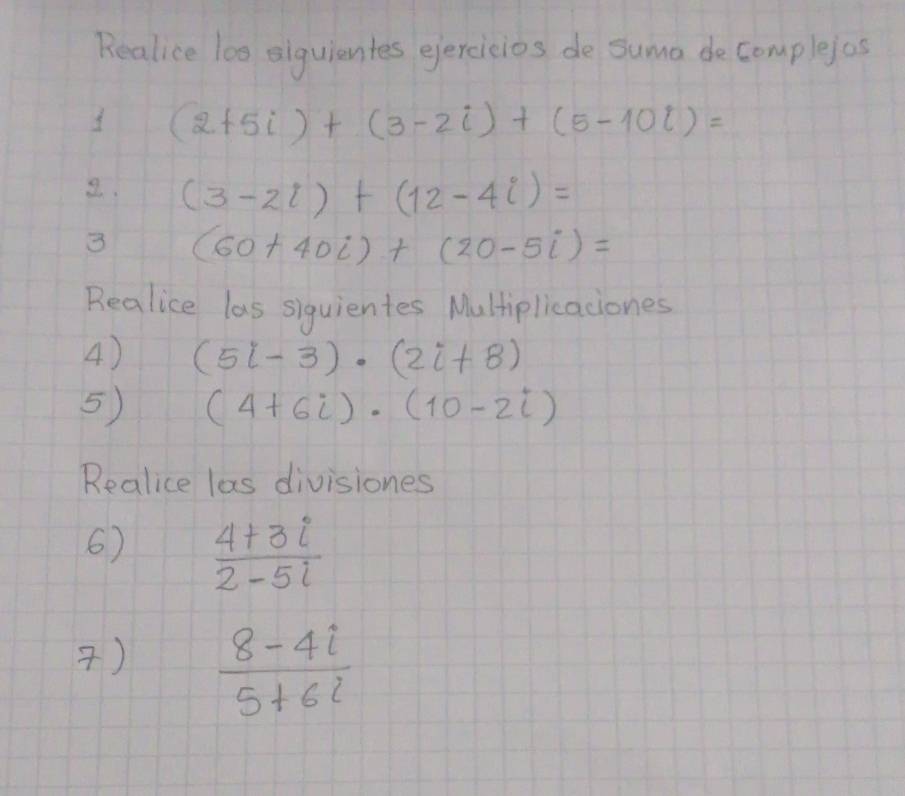 Realice los siguientes ejercicios de suma de complejos
1 (2+5i) + (3-2i) + (5-10i) =
2. (3-2i) + (12-4i) =
3 (60+40i) + (20-5i) =
Realice las siguientes Multiplicaciones
4) (5i-3) . (2i+8)
5) (4+6i) . (10-2i)
Realice las divisiones
6) 4+3i
2-5i
7) 8-4i
5+6i